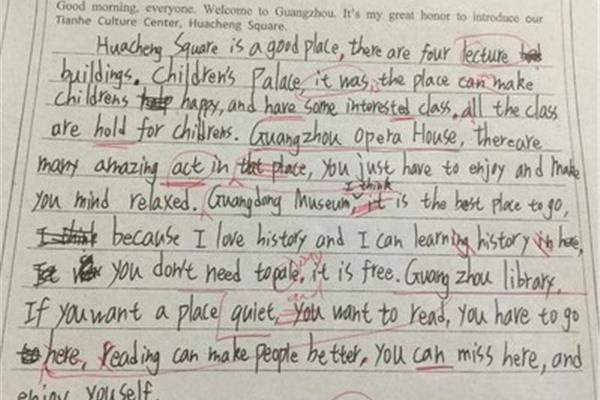 Good morning, everyone. Welcome to Guangzhou. It's my great honor to introduce our
Tianhe Culture Center, Huacheng Square.
Huacheng Square is a good place, there are four lecture
buildings. Children's Palace, it was the place can make
childrens happy, and have some interested class, all the class
are hold for childrens. Guangzhou Opera House, thereare
many amazing act in place, you just have to enjoy and make
I think
you mind relaxed. Guangdong Museum, it is the best place to go,
because I love history and I can learning history in here,
you don't need to pale, it is free. Guang zhou library,
If you want a place quiet, you want to read, you have to go
here, reading can make people better, you can miss here, and
enjoy youself.